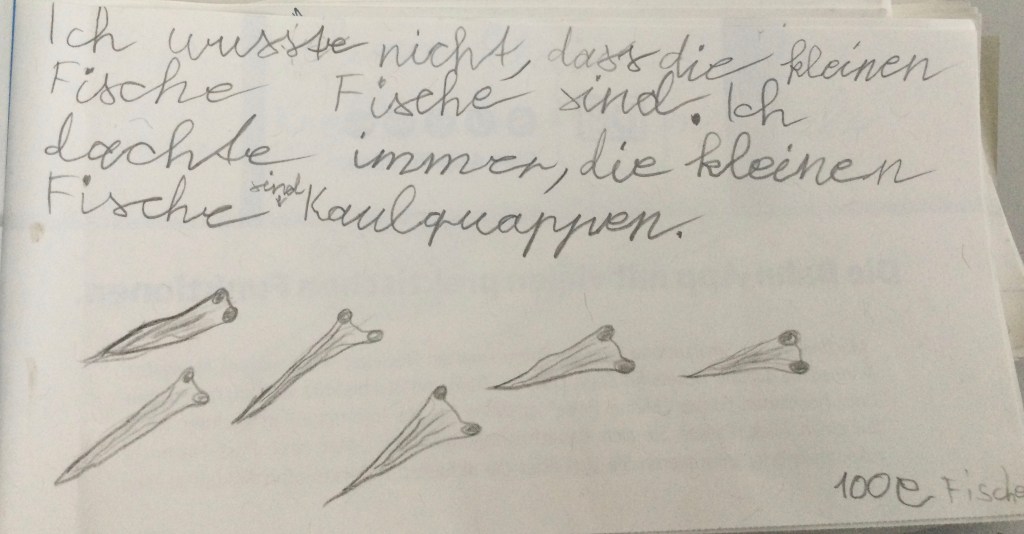 Ich wusste nicht, dass die kleinen
Fische Fische sind. Ich
dachte immer, die kleinen
Fische sind Kaulquappen.
100e Fische